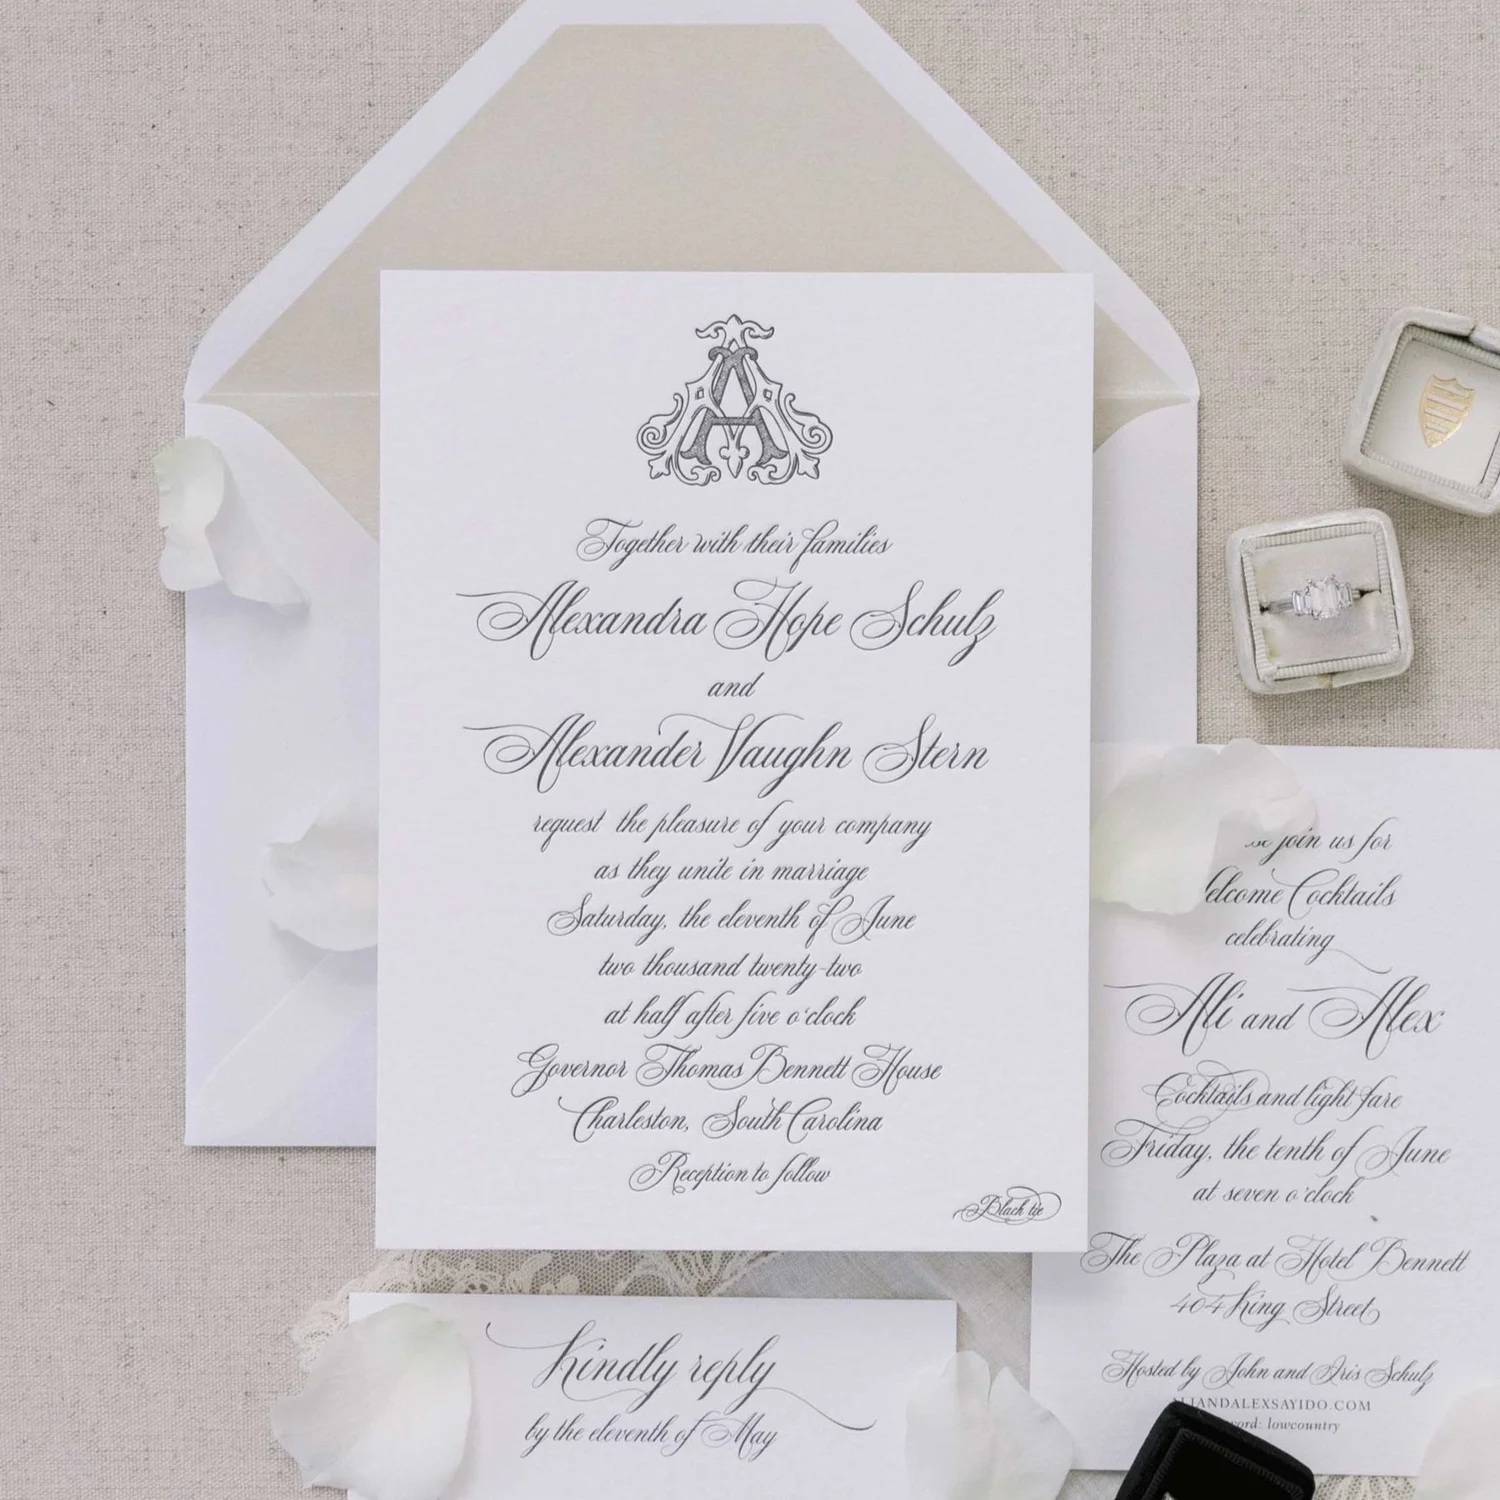 A
Together with their families
Alexandra Hope Schulz
and
Alexander Vaughn Stern
request the pleasure of your company
as they unite in marriage
Saturday, the eleventh of June
two thousand twenty-two
at half after five o'clock
Governor Thomas Bennett House
Charleston, South Carolina
Reception to follow
Black tie
Kindly reply
by the eleventh of May
join us for
elcome Cocktails
celebrating
Ali and Alex
Cocktails and light fare
Friday, the tenth of June
at seven o'clock
The Plaza at Hotel Bennett
404 King Street
Hosted by John and Iris Schulz
ALIANDALEXSAYIDO.COM
word: lowcountry